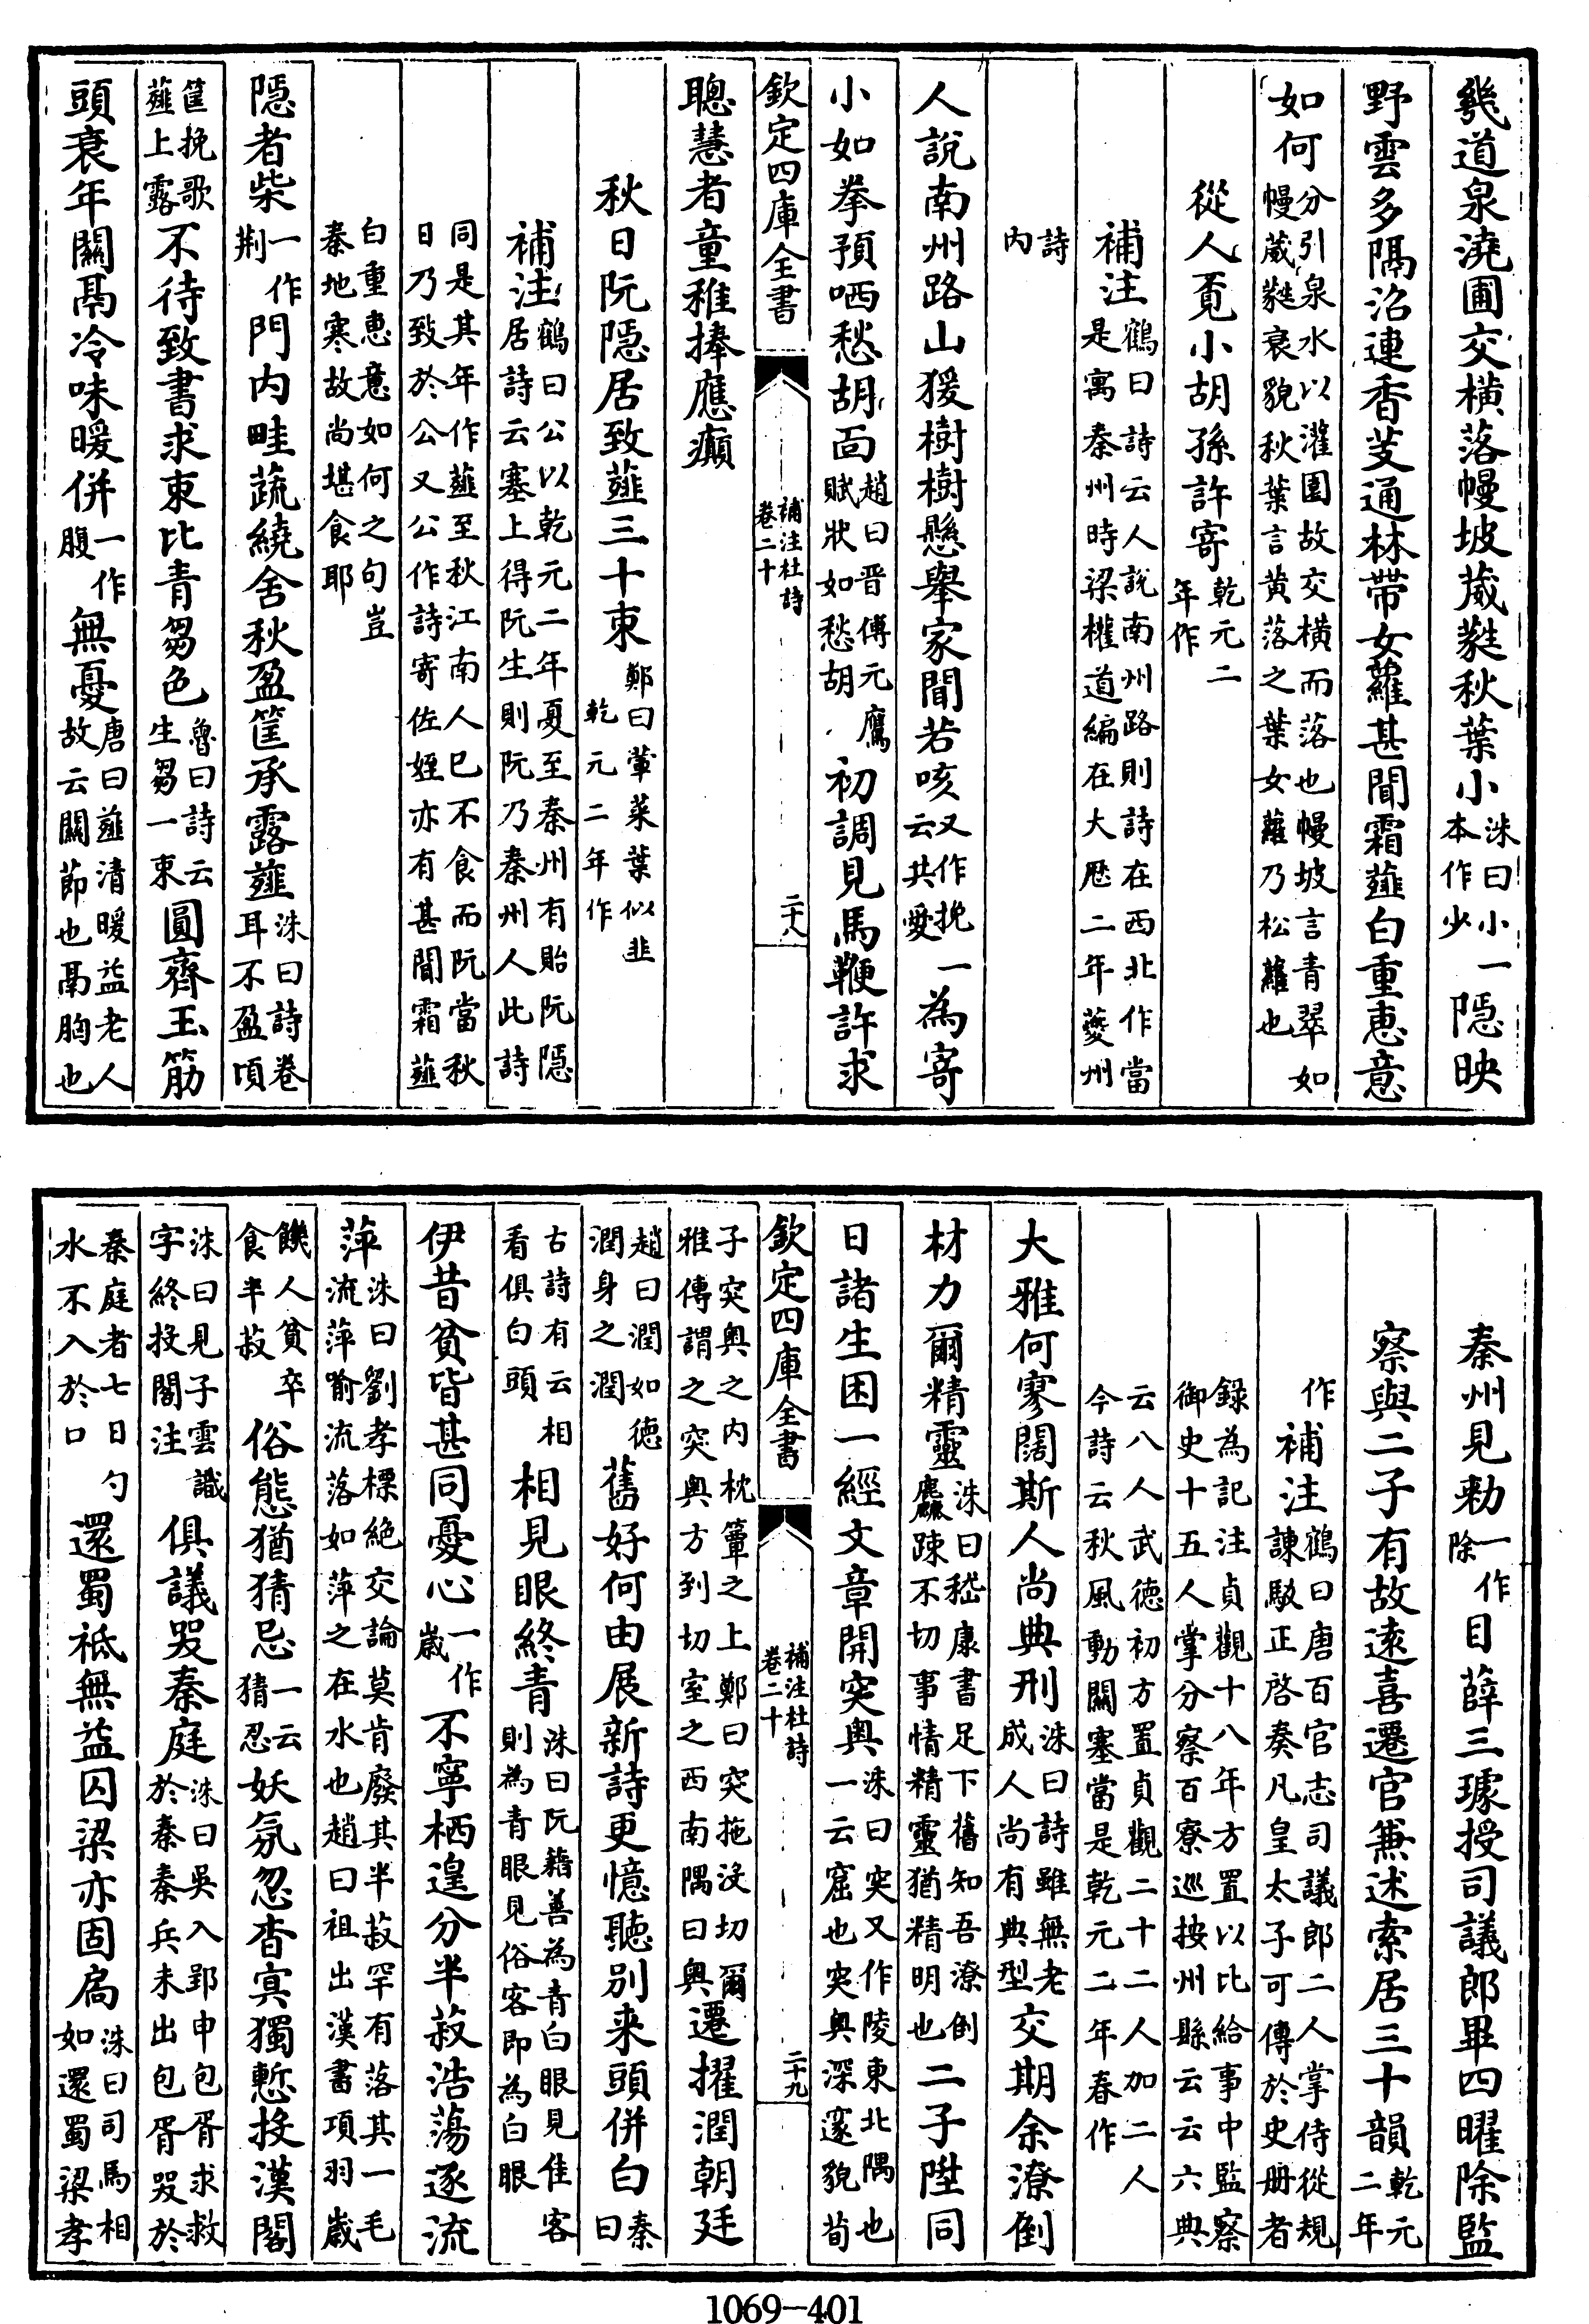 幾道泉澆圃交橫落幔坡葳蕤秋葉小洙曰小一本作少隱映
野雲多隔沼連香芰通林帶女蘿甚聞霜薤白重惠意
如何分引泉水以灌園故交橫而落也幔坡言青翠如幔葳蕤衰貌秋葉言黄落之葉女蘿乃松蘿也
從人覓小胡孫許寄乾元二年作
補注鶴曰詩云人說南州路則詩在西北作當是寓秦州時梁權道編在大厯二年夔州
詩内
人說南州路山猨樹樹懸舉家聞若咳又作挽云共愛一為寄
小如拳預哂愁胡面趙曰晋傅元鷹賦狀如愁胡初調見馬鞭許求
欽定四庫全書 補注杜詩卷二十 二十八
聰慧者童稚捧應癲
秋日阮隱居致薤三十束鄭曰葷菜葉似韭乾元二年作
補注鶴曰公以乾元二年夏至秦州有貽阮隱居詩云塞上得阮生則阮乃秦州人此詩
同是其年作薤至秋江南人巳不食而阮當秋日乃致於公又公作詩寄佐姪亦有甚聞霜薤
白重惠意如何之句豈秦地寒故尚堪食耶
隱者柴一作荆門内畦蔬繞舍秋盈筐承露薤洙曰詩卷耳不盈頃
筐挽歌薤上露不待致書求束比青芻色魯曰詩云生芻一束圓齊玉筯
頭衰年關鬲冷味暖併一作腹無憂唐曰薤清暖益老人故云關節也鬲胸也
秦州見勅一作除目薛三璩授司議郎畢四曜除監
察與二子有故遠喜遷官兼述索居三十韻乾元二年
作補注鶴曰唐百官志司議郎二人掌侍從規諫駮正啓奏凡皇太子可傳於史册者
録為記注貞觀十八年方置以比給事中監察御史十五人掌分察百寮巡按州縣云云六典
云八人武德初方置貞觀二十二人加二人今詩云秋風動關塞當是乾元二年春作
大雅何寥闊斯人尚典刑洙曰詩雖無老成人尚有典型交期余潦倒
材力爾精靈洙曰嵇康書足下舊知吾潦倒麤疎不切事情精靈猶精明也二子陞同
日諸生困一經文章開突奥洙曰突又作陵東北隅也一云窟也突奥深邃貌荀
欽定四庫全書 補注杜詩卷二十 二十九
子突奥之内枕簟之上鄭曰突拖沒切爾雅傳謂之突奥方到切室之西南隅曰奥遷擢潤朝廷
趙曰潤如德潤身之潤舊好何由展新詩更憶聽别来頭併白秦曰
古詩有云相看俱白頭相見眼終青洙曰阮籍善為青白眼見佳客則為青眼見俗客即為白眼
伊昔貧皆甚同憂心一作歲不寧栖遑分半菽浩蕩逐流
萍洙曰劉孝標絶交論莫肯廢其半菽罕有落其一毛流萍喻流落如萍之在水也趙曰祖出漢書項羽歲
饑人貧卒食半菽俗態猶猜忌一云猜忍妖氛忽杳㝠獨慙投漢閣
洙曰見子雲識字終投閣注俱議哭秦庭洙曰吳入郢申包胥求救於秦秦兵未出包胥哭於
秦庭者七日勺水不入於口還蜀祗無益囚梁亦固扃洙曰司馬相如還蜀梁孝
1069-401